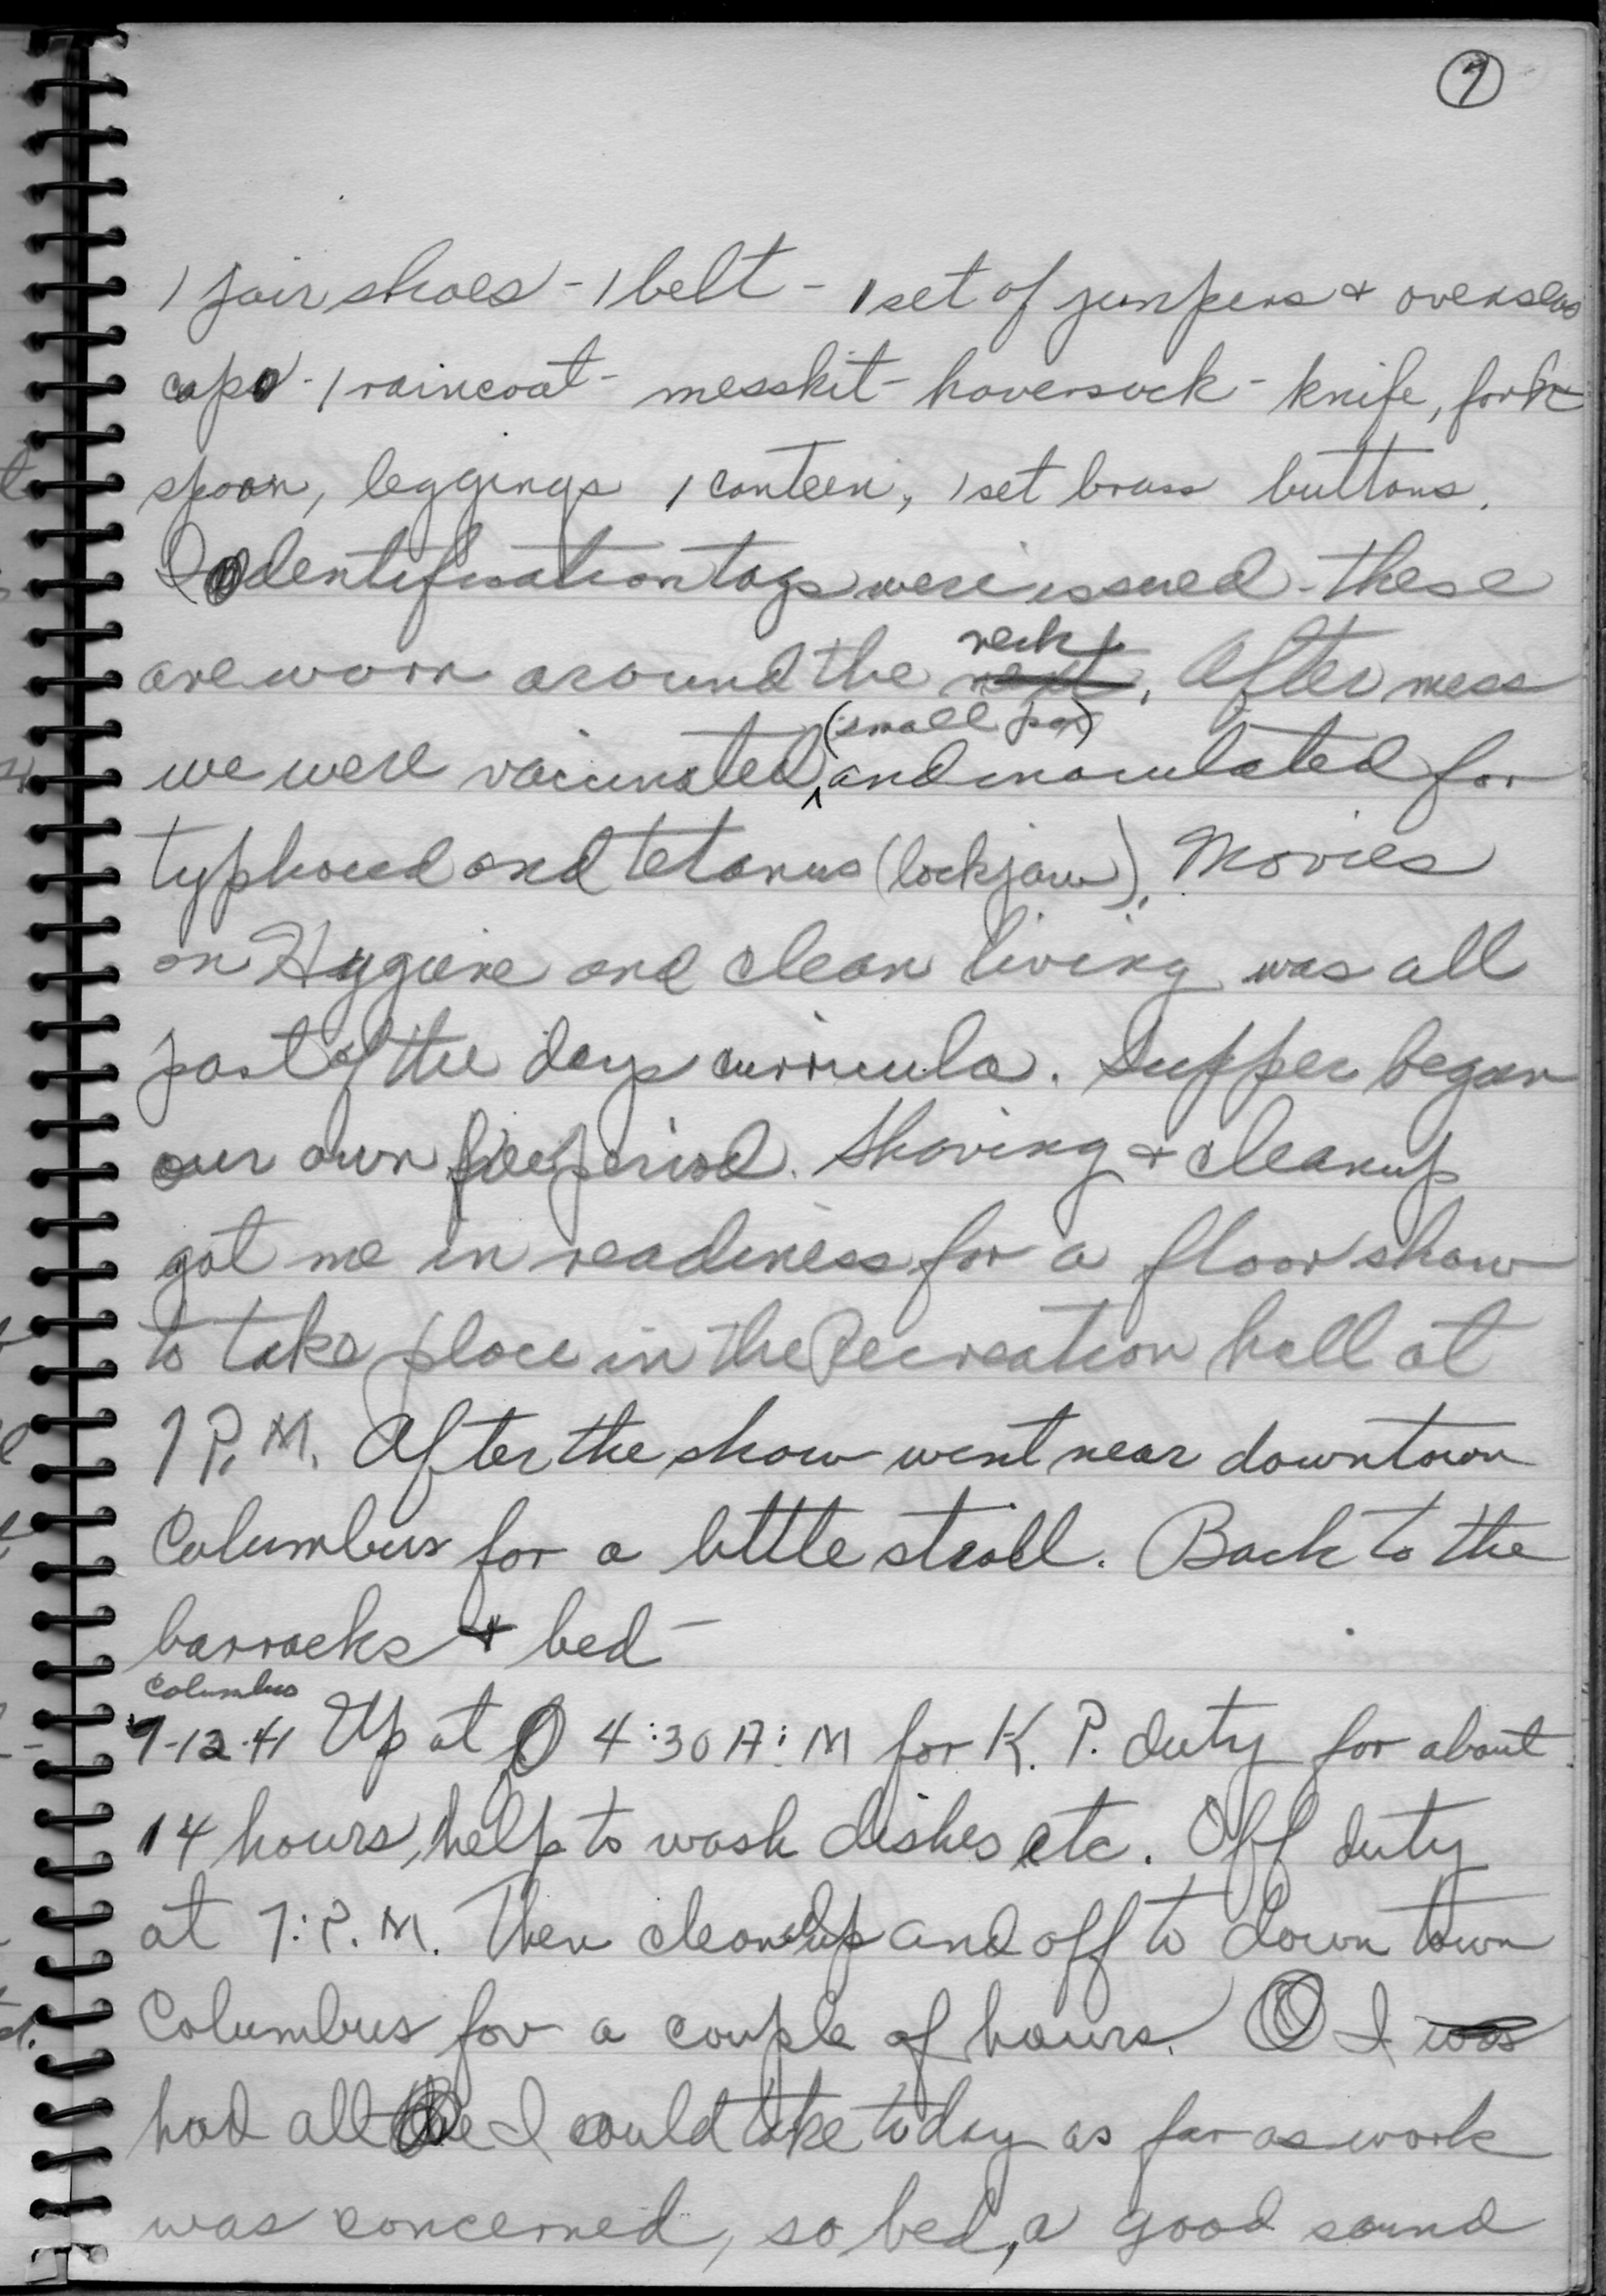 7
1 pair shoes - 1 belt - 1 set of jumpers + overseas
cap - 1 raincoat - messkit - haversack - knife, fork
spoon, leggings 1 canteen, 1 set brass buttons.
Identification tags were issued - these
are worn around the neck next. After mess
we were vaccinated (small pox) and inoculated for
typhoid and tetanus (lockjaw). Movies
on Hygiene and clean living was all
part of the days curricula. Supper began
our own free period. Shaving + cleanup
got me in readiness for a floor show
to take place in the Recreation hall at
7 P.M. After the show went near downtown
Columbus for a little stroll. Back to the
barracks + bed -
Columbus
7-12-41 Up at 4:30 A:M for K.P. duty for about
14 hours, help to wash dishes etc. Off duty
at 7:P.M. Then cleaned up and off to down town
Columbus for a couple of hours. I was
had all the I could take today as far as work
was concerned, so bed, a good sound